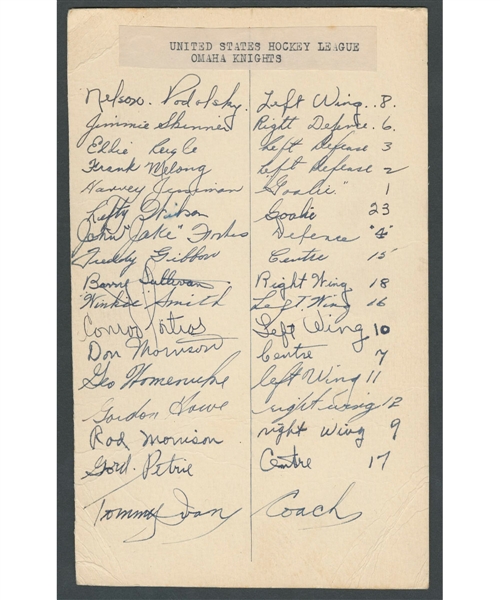 UNITED STATES HOCKEY LEAGUE
OMAHA KNIGHTS
Nelson. Podolsky. Left Wing. 8.
Jimmie Skinner Right Defence 6.
Eddie Reigle Left Defense 3
Frank Melong Left Defense 2
Harvey Jessiman "Goalie" 1
Lefty Wilson Goalie 23
John "Jake" Forbes Defence "4"
Freddy Gibbon Centre 15
Barry Sullivan Right Wing 18
"Winkie" Smith Left Wing 16
Conroy Poitras Left Wing 10
Don Morrison Centre 7
Geo Homeniuke left Wing 11
Gordon Howe right wing 12
Rod Morrison right Wing 9
Gord. Petrie Centre 17
Tommy Ivan Coach